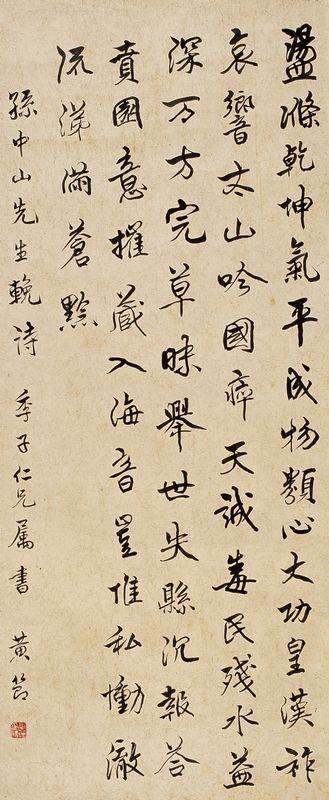 盪滌乾坤氣平成物類心大功皇漢祚
哀響山吟國瘁天誠毒民殘水益
深万方完草昧舉世失縣沉報答
賁園意摧藏入海音豈惟私慟徹
流涕滿蒼黔
孫中山先生輓詩 季子仁兄屬書 黃節